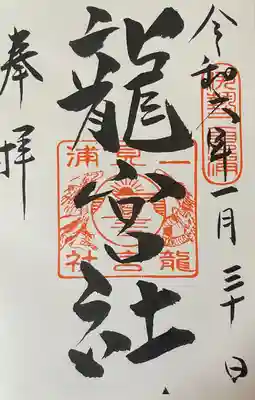 令和六年一月三十日
龍宮社
奉拝
二見浦
龍宮社